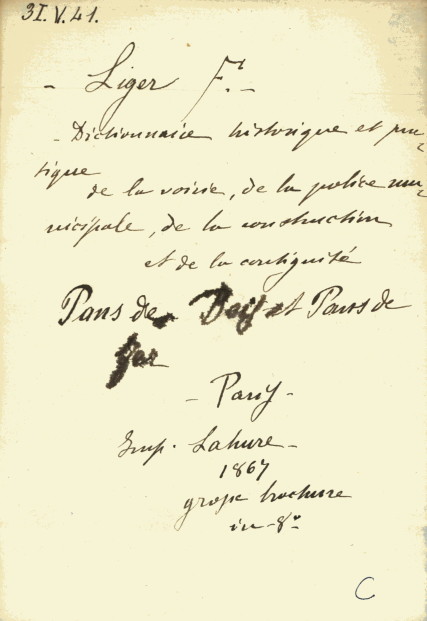 31.V.41.
- Liger F.t -
- Dictionnaire historique et pra-
tique
de la voirie, de la police mu-
nicipale, de la construction
et de la contiguité
Pans de Bois et Pans de
fer
- Paris -
Imp. Lahure -
1867
grosse brochure
in-8º
C